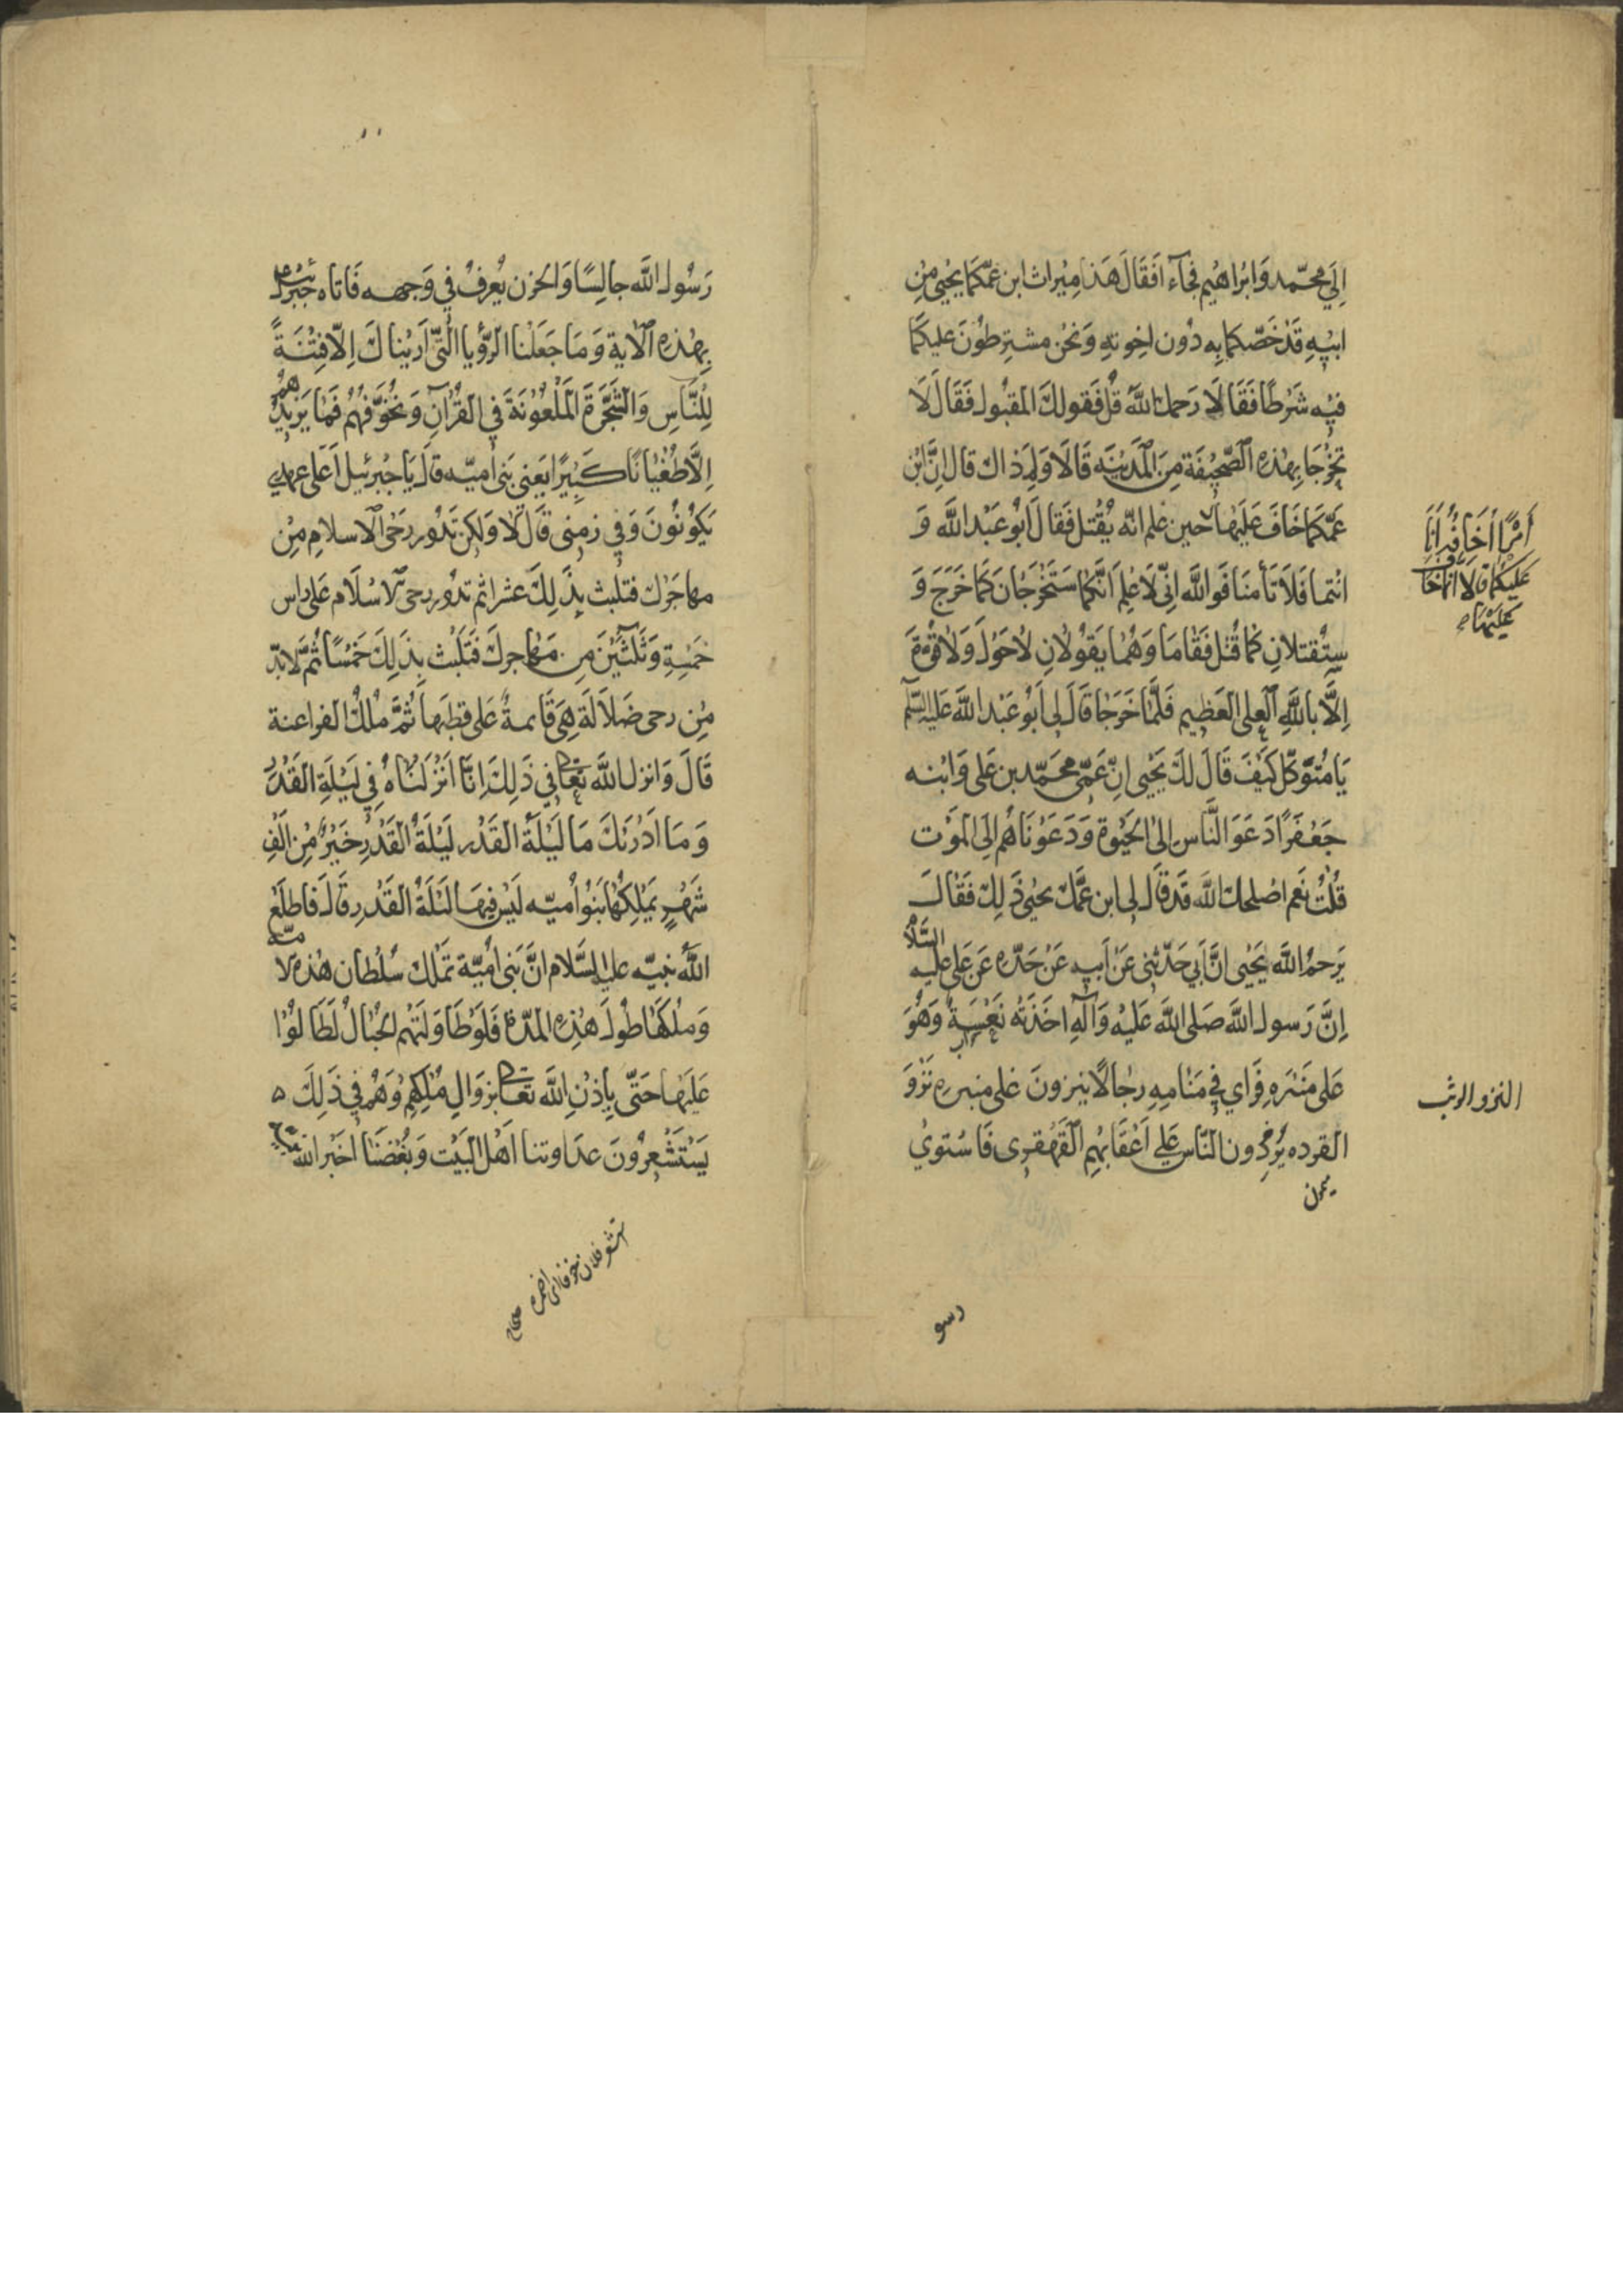 اِلَي محمّد وَابرَاهيم فجاءَ افَقَالَ هَذا مِيْراث ابن عمّكما يحْيي مِن
ابيْهِ قَدْ خَصّكما بِه دُون اخِوتهِ وَنحْن مشترِطوُنَ عليكما
فيْه شَرْطًا فَقَا لَا رَحمك اللّٰه قُل فَقولكَ المقبُول فَقَال لَا
تَخْرُجَا بِهٰذهِ الصَّحِيْفَة مِنَ المَديْنَه قَالَا وَلِمَ ذاك قال اِنَّ ابْن
عَمّكما خَافَ عَلَيهَا
حين علم انّه يُقْتل فَقالَ اَبُو عَبْد اللَّه وَ
اَمْرًا اَخَافُه اَنَا
عَليْكما قالا انما خاف
عَلَيْهَا
انْتما فَلَا تَأمنَا فَوَاللَّه اِنّي لَاَعْلم اَنَّكما سَتَخْرُجَان كَمَا خَرَجَ وَ
سَتُقتلانِ كما قُتل فَقَامَا وَهُمَا يَقوُلانِ لاحَوْلَ وَلا قُوّة
اِلَّا باللَّهِ العِلي العَظِيم فَلَمّا خَرَجَا قَالَ لي اَبُو عَبْد اللَّه عَليْه السّلَم
يَا مُتوَكّل كَيْفَ قَالَ لكَ يَحْيي انّ عَمّي محَمّد بن عَلي وَابْنه
جَعْفَرًا دَعَوَا النَّاس اِلَى الحَيٰوة وَدَعَوْنَاهُم اِلَى المَوْت
قُلْتُ نَعم اصْلحك اللَّه قَدْ قَالَ لي ابن عَمّك يحْيي ذَلِكَ فَقَالَ
يَرحمُ اللَّه يَحْيي انَّ اَبي حَدّثني عَنْ اَبيه عَنْ جَدّه عَن عَلي عليه السَّلام
اِنَّ رَسول اللَّه صَلى اللَّه عَليْه وَآله اخَذَتْه نَعْسَةٌ وَهُوَ
عَلى مَنْبَرهِ فَرَاي فِي مَنَامِهِ رجالًا ينزونَ عَلى منبرِه نَزْوَ
النزو الوثب
القرده يُرَدّون النّاس عَلي اَعْقَابِهِم القَهْقرى فَاسْتوي
ميمون
رسو
رَسُول اللَّه جالِسًا وَالحزن يُعْرفُ في وَجهه فَاتاه جبْرئيل
بهٰذه الْاٰية وَمَا جَعَلْنا الرّؤيا الَّتي اَرَيْناكَ اِلَّا فِتْنَةً
لِلنَّاسِ وَالشَّجَرَةَ المَلْعُوْنَةَ فِي القُرْآنِ وَنُخَوّفُهُمْ فَمَا يَزيْدُهُمْ
اِلَّا طُغْيَانًا كَبِيْرًا يَعني بَني اميّه قالَ يَا جبْرئيل اَعَلى عهدي
يَكوُنُونَ وَفِي زمني قَالَ لا وَلكن تَدُور رَحَى الْاسلامِ مِنْ
مهاجَرك فتلبث بذَلِكَ عشرا ثم تدُور رحى الاسْلَام عَلى راس
خمْسَةٍ وَثَلَثيْنَ مِن مَهَاجركَ فَتَلبْث بذَلِكَ خَمْسًا ثُمّ لابدّ
مِن رحى ضَلَالَة هِيَ قَائمةٌ عَلى قطبها ثُمَّ مُلْكُ الفراعنة
قَالَ وَانزل اللَّه تعَالى في ذَلِكَ اِنّا اَنْزَلْناهُ فِي لَيْلَةِ القَدْر
وَمَا اَدْرٰكَ مَا لَيْلَةُ القَدْر لَيْلَةُ القَدْرِ خَيْرٌ مِنْ اَلْفِ
شَهْرٍ يَمْلِكُهَا بَنُوا اُميّه لَيْسَ فِيهَا لَيْلَةُ القَدْر قَالَ فَاطلَعَ
اللّٰهُ نبيّه عليه السَّلام انَّ بَني اُميّة تَمْلك سُلْطان هٰذهِ الامّة
وَمُلْكَهَا طُولَ هٰذِهِ المدّة فَلَو طَاوَلَتْهُم الجبَالُ لَطَالوُا
عَلَيهَا حَتّى يأذن اللَّه تعَالى بزوَالِ مُلْكِهِمْ وَهُمْ فِي ذَلِكَ
يَسْتَشْعِرُوْنَ عدَاوتنا اَهْل البَيْت وَبُغْضنا اَخبَر اللّٰه نبيّه
استشعر فلان خوفا اي اضمره صحاح